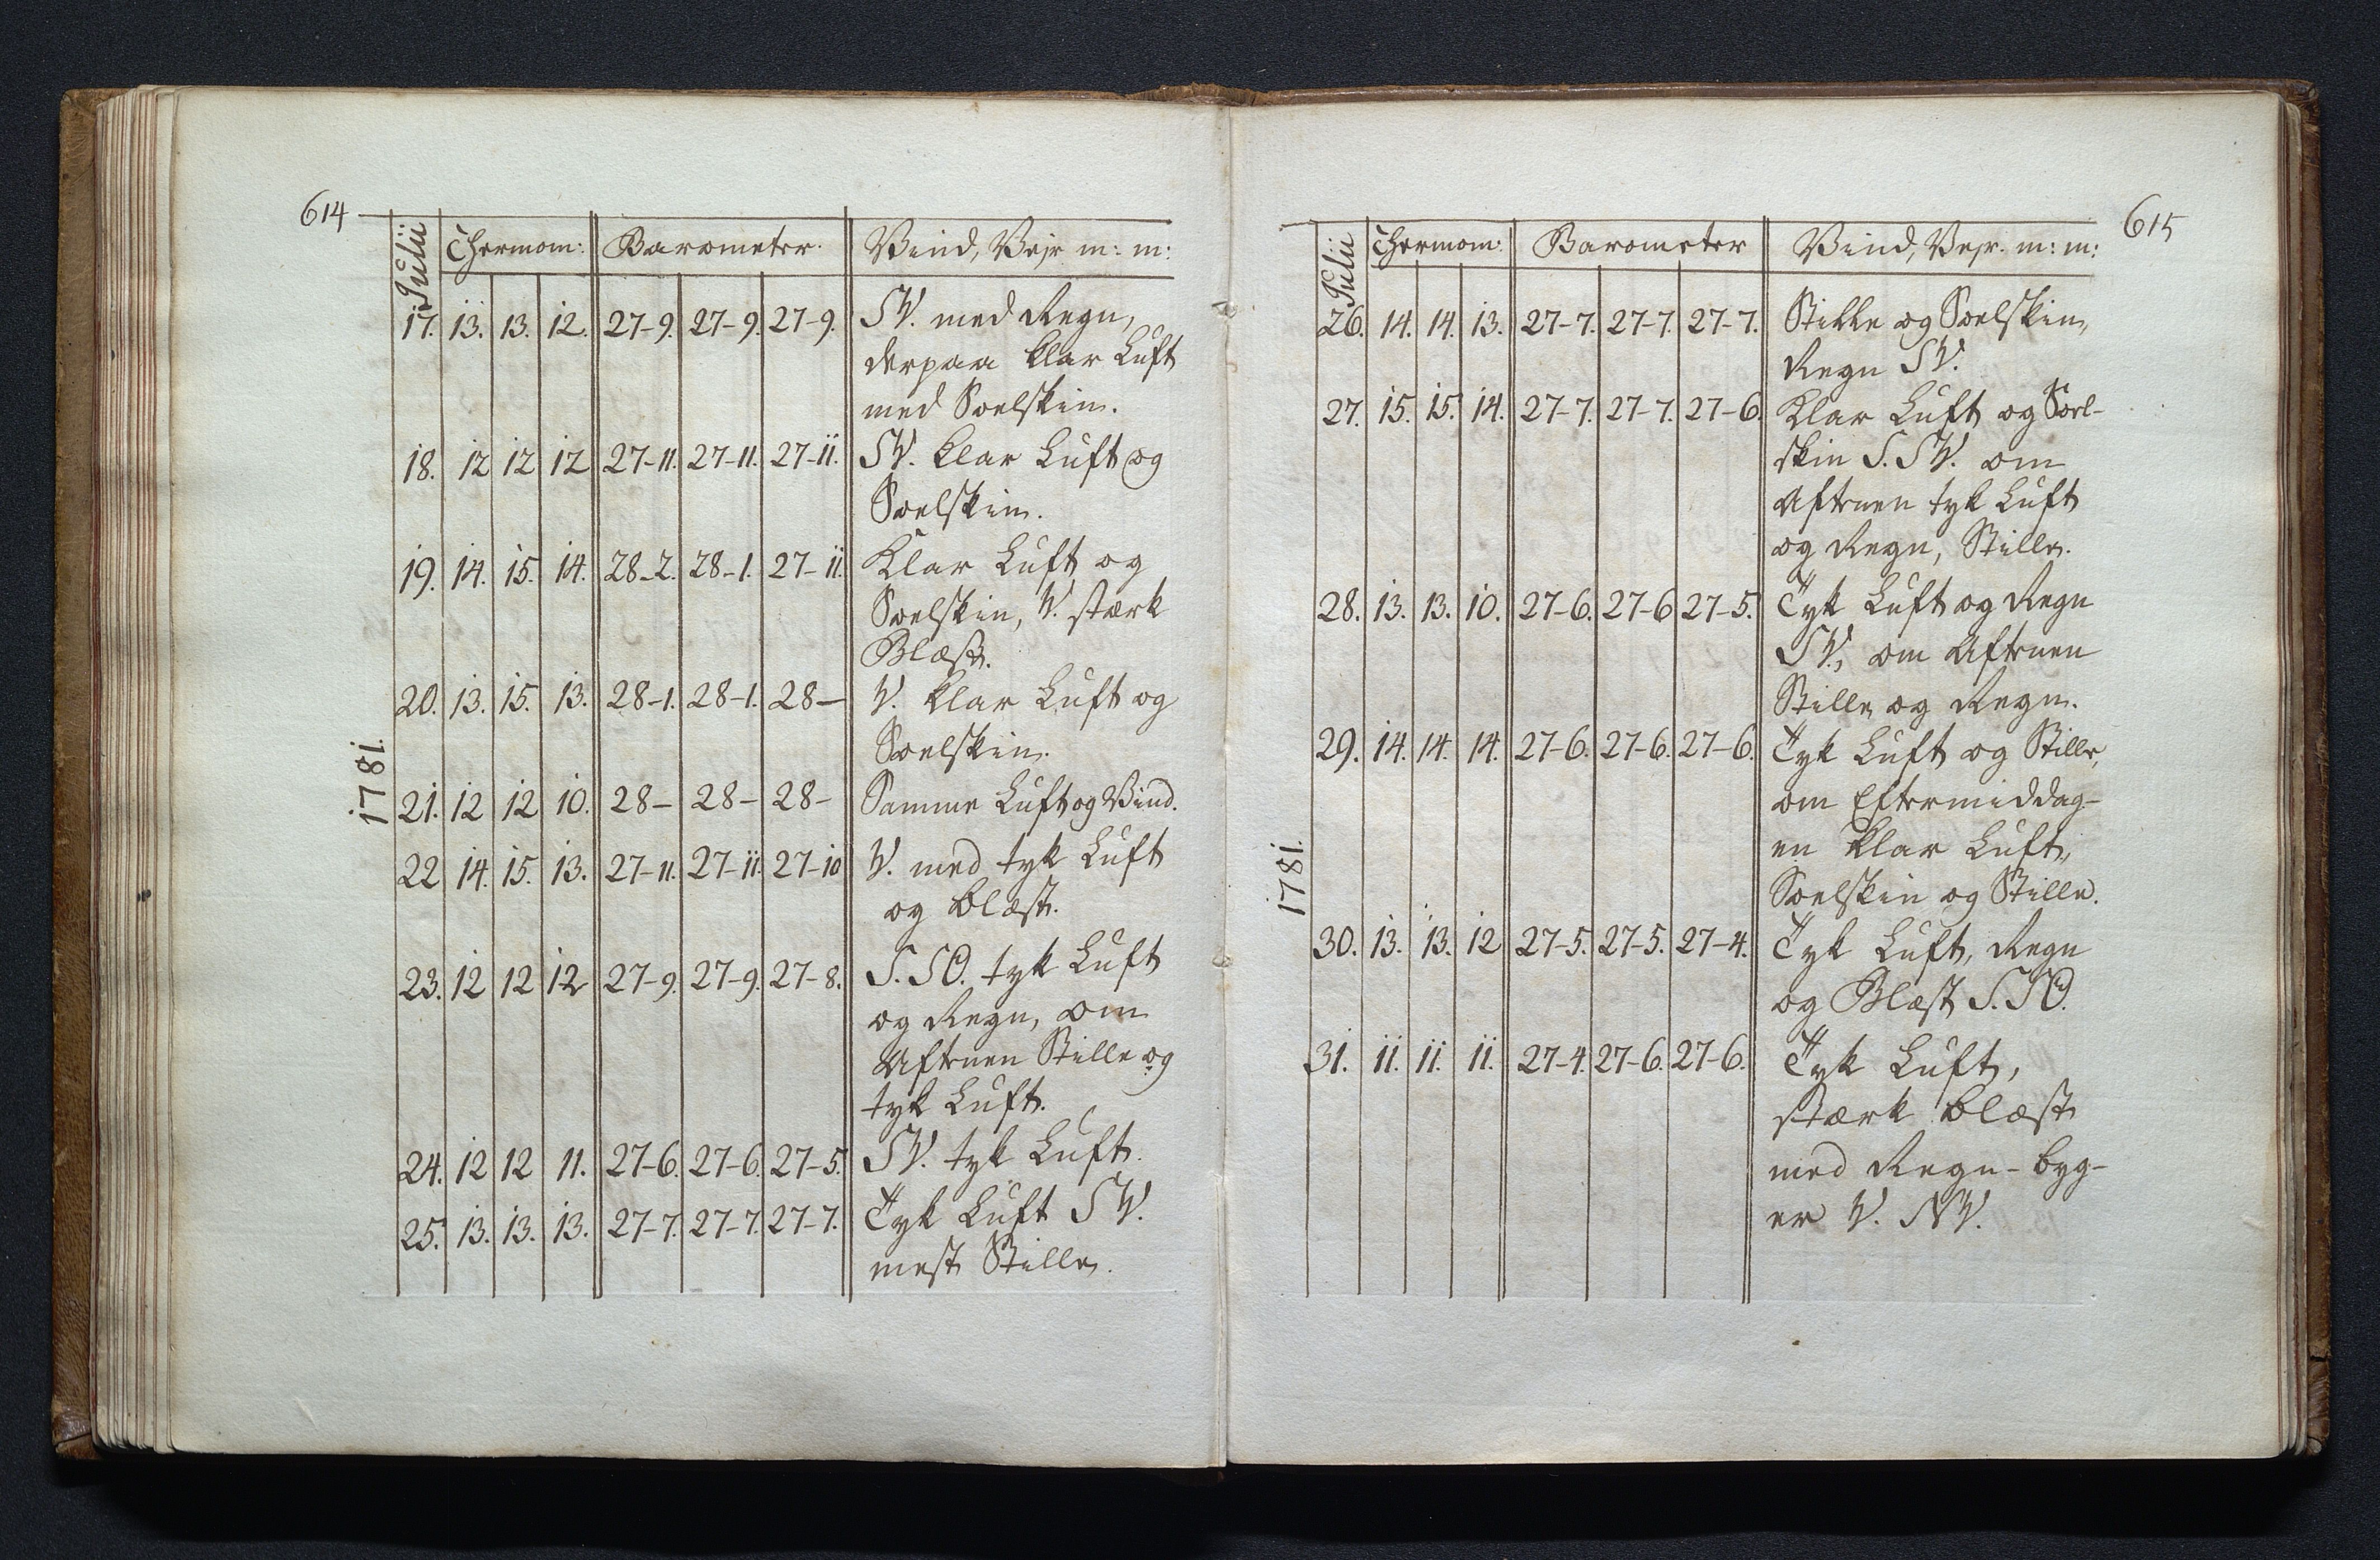 614
Julii Thermom: Barometer. Vind, Vejr m: m:
17. 13. 13. 12. 27-9. 27-9. 27-9. SV. med Regn,
derpaa klar Luft
med Soelskin.
18. 12 12 12 27-11. 27-11. 27-11. SV. klar Luft og
Soelskin.
19. 14. 15. 14. 28-2. 28-1. 27-11. Klar Luft og
Soelskin, V. stærk
Blæst.
20. 13. 15. 13. 28-1. 28-1. 28- V. klar Luft og
Soelskin.
1781.
21. 12 12 10. 28- 28- 28- Samme Luft og Vind.
22 14. 15. 13. 27-11. 27-11. 27-10 V. med tyk Luft
og blæst.
23. 12 12 12 27-9. 27-9. 27-8. S. SO. tyk Luft
og Regn, om
Aftenen Stille og
tyk Luft.
24. 12 12 11. 27-6. 27-6. 27-5. SV. tyk Luft.
25. 13. 13. 13. 27-7. 27-7. 27-7. Tyk Luft SV.
mest Stille.
615
Julii Thermom: Barometer Vind, Vejr. m: m:
26. 14. 14. 13. 27-7. 27-7. 27-7. Stille og Soelskin,
Regn SV.
27. 15. 15. 14. 27-7. 27-7. 27-6. Klar Luft og Soel-
skin S. SV. om
Aftenen tyk Luft
og Regn, Stille.
28. 13. 13. 10. 27-6. 27-6 27-5. Tyk Luft og Regn
SV., om Aftenen
Stille og Regn.
29. 14. 14. 14. 27-6. 27-6. 27-6. Tyk Luft og Stille,
om Eftermiddag-
en klar Luft,
Soelskin og Stille.
1781.
30. 13. 13. 12 27-5. 27-5. 27-4. Tyk Luft, Regn
og Blæst S. SO.
31. 11. 11. 11. 27-4. 27-6. 27-6. Tyk Luft,
stærk blæst
med Regn-byg-
er V. NV.